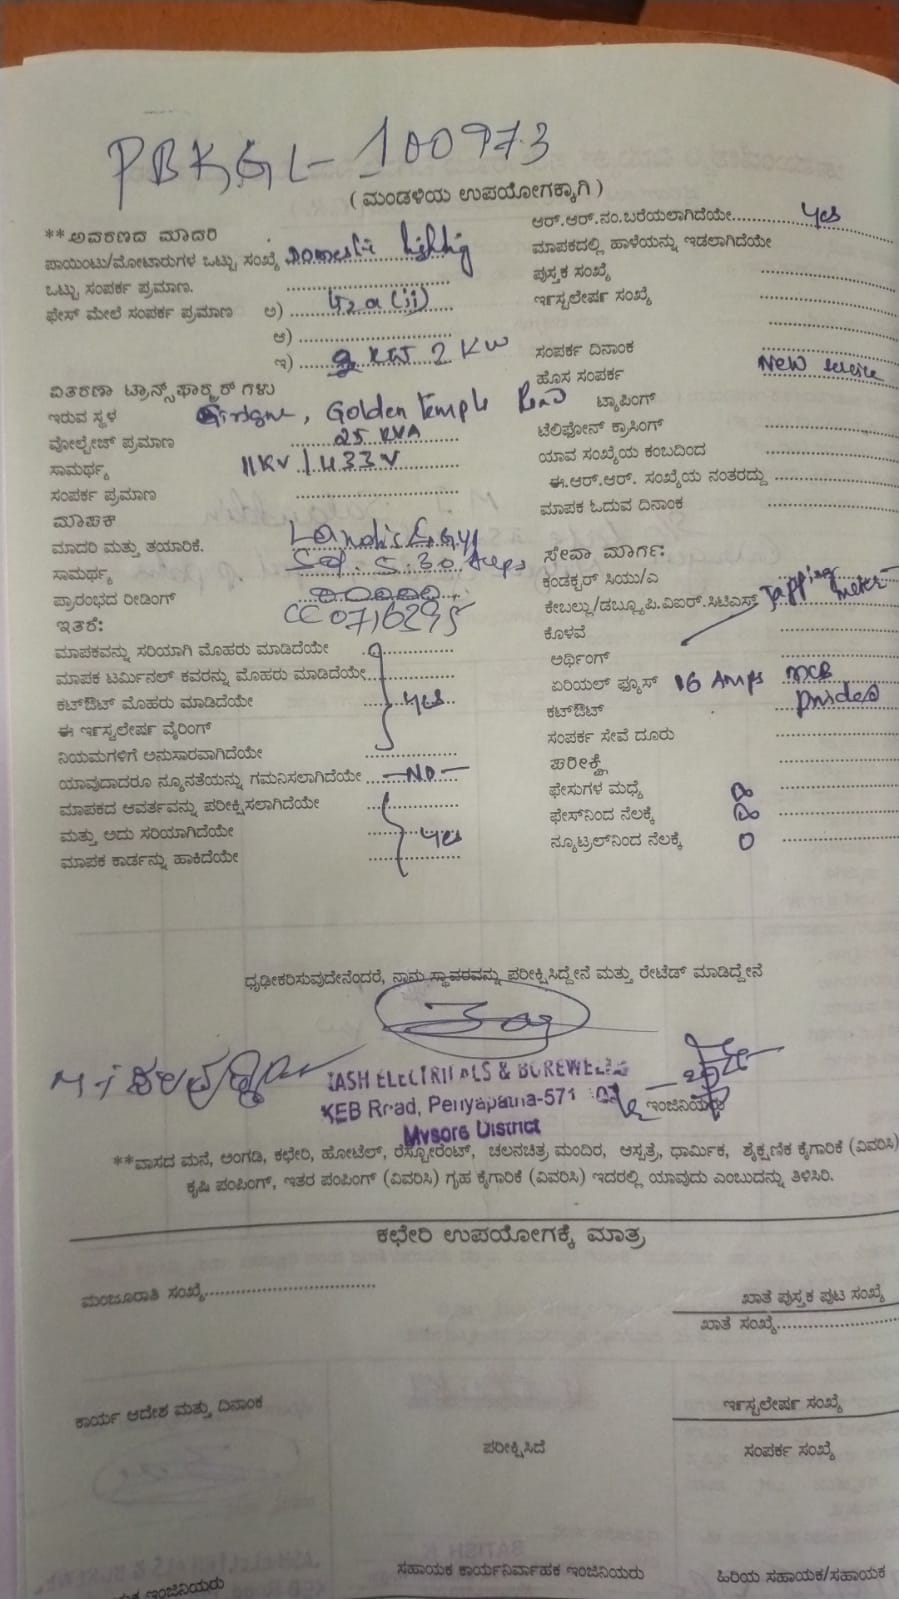 PBKGL-100973
( ಮಂಡಳಿಯ ಉಪಯೋಗಕ್ಕಾಗಿ )
**ಅವಕಣದ ಮಾದರಿ
ಪಾಯಿಂಟು/ಮೋಟಾರುಗಳ ಒಟ್ಟು ಸಂಖ್ಯೆ Domestic lighting
ಒಟ್ಟು ಸಂಪರ್ಕ ಪ್ರಮಾಣ.
ಫೇಸ್ ಮೇಲೆ ಸಂಪರ್ಕ ಪ್ರಮಾಣ ಅ)
ಆ)
ಇ) 2 KW
ವಿತರಣಾ ಟ್ರಾನ್ಸ್‌ಫಾರ್ಮರ್ ಗಳು
ಇರುವ ಸ್ಥಳ Golden Temple Road
ವೋಲ್ಟೇಜ್ ಪ್ರಮಾಣ 25 KVA
ಸಾಮರ್ಥ್ಯ 11KV / 433V
ಸಂಪರ್ಕ ಪ್ರಮಾಣ
ಮಾಪಕ
ಮಾದರಿ ಮತ್ತು ತಯಾರಿಕೆ.
ಸಾಮರ್ಥ್ಯ 5-30 Amps
ಪ್ರಾರಂಭದ ರೀಡಿಂಗ್ 00000
ಇತರೆ:
ಮಾಪಕವನ್ನು ಸರಿಯಾಗಿ ಮೊಹರು ಮಾಡಿದೆಯೇ
ಮಾಪಕ ಟರ್ಮಿನಲ್ ಕವರನ್ನು ಮೊಹರು ಮಾಡಿದೆಯೇ
ಕಟ್‌ಔಟ್ ಮೊಹರು ಮಾಡಿದೆಯೇ yes
ಈ ಇನ್‌ಸ್ಟಲೇಷನ್ ವೈರಿಂಗ್
ನಿಯಮಗಳಿಗೆ ಅನುಸಾರವಾಗಿದೆಯೇ
ಯಾವುದಾದರೂ ನ್ಯೂನತೆಯನ್ನು ಗಮನಿಸಲಾಗಿದೆಯೇ - NO -
ಮಾಪಕದ ಆವರ್ತವನ್ನು ಪರೀಕ್ಷಿಸಲಾಗಿದೆಯೇ
ಮತ್ತು ಅದು ಸರಿಯಾಗಿದೆಯೇ yes
ಮಾಪಕ ಕಾರ್ಡನ್ನು ಹಾಕಿದೆಯೇ
ಆರ್.ಆರ್.ನಂ.ಬರೆಯಲಾಗಿದೆಯೇ yes
ಮಾಪಕದಲ್ಲಿ ಹಾಳೆಯನ್ನು ಇಡಲಾಗಿದೆಯೇ
ಪುಸ್ತಕ ಸಂಖ್ಯೆ
ಇನ್‌ಸ್ಟಲೇಷನ್ ಸಂಖ್ಯೆ
ಸಂಪರ್ಕ ದಿನಾಂಕ
ಹೊಸ ಸಂಪರ್ಕ New service
ಟ್ಯಾಪಿಂಗ್
ಟೆಲಿಫೋನ್ ಕ್ರಾಸಿಂಗ್
ಯಾವ ಸಂಖ್ಯೆಯ ಕಂಬದಿಂದ
ಈ.ಆರ್.ಆರ್. ಸಂಖ್ಯೆಯ ನಂತರದ್ದು
ಮಾಪಕ ಓದುವ ದಿನಾಂಕ
ಸೇವಾ ಮಾರ್ಗ:
ಕಂಡಕ್ಟರ್ ಸಿಯು/ಎ
ಕೇಬಲ್ಲು/ಡಬ್ಲ್ಯೂಪಿ.ವಿಐಆರ್.ಸಿಟಿಎಸ್ Tapping meter
ಕೊಳವೆ
ಅರ್ಥಿಂಗ್
ಏರಿಯಲ್ ಫ್ಯೂಸ್ 16 Amps MCB
ಕಟ್‌ಔಟ್
ಸಂಪರ್ಕ ಸೇವೆ ದೂರು
ಪರೀಕ್ಷೆ
ಫೇಸುಗಳ ಮಧ್ಯೆ
ಫೇಸ್‌ನಿಂದ ನೆಲಕ್ಕೆ
ನ್ಯೂಟ್ರಲ್‌ನಿಂದ ನೆಲಕ್ಕೆ 0
ಧೃಢೀಕರಿಸುವುದೇನೆಂದರೆ, ನಾನು ಸ್ಥಾವರವನ್ನು ಪರೀಕ್ಷಿಸಿದ್ದೇನೆ ಮತ್ತು ರೇಟೆಡ್ ಮಾಡಿದ್ದೇನೆ
KEB Road, Periyapatna-571
Mysore District
ಇಂಜಿನಿಯರು
**ವಾಸದ ಮನೆ, ಅಂಗಡಿ, ಕಛೇರಿ, ಹೋಟೆಲ್, ರೆಸ್ಟೋರೆಂಟ್, ಚಲನಚಿತ್ರ ಮಂದಿರ, ಆಸ್ಪತ್ರೆ, ಧಾರ್ಮಿಕ, ಶೈಕ್ಷಣಿಕ ಕೈಗಾರಿಕೆ (ವಿವರಿಸಿ)
ಕೃಷಿ ಪಂಪಿಂಗ್, ಇತರ ಪಂಪಿಂಗ್ (ವಿವರಿಸಿ) ಗೃಹ ಕೈಗಾರಿಕೆ (ವಿವರಿಸಿ) ಇದರಲ್ಲಿ ಯಾವುದು ಎಂಬುದನ್ನು ತಿಳಿಸಿರಿ.
ಕಛೇರಿ ಉಪಯೋಗಕ್ಕೆ ಮಾತ್ರ
ಮಂಜೂರಾತಿ ಸಂಖ್ಯೆ
ಖಾತೆ ಪುಸ್ತಕ ಪುಟ ಸಂಖ್ಯೆ
ಖಾತೆ ಸಂಖ್ಯೆ
ಕಾರ್ಯ ಆದೇಶ ಮತ್ತು ದಿನಾಂಕ
ಇನ್‌ಸ್ಟಲೇಷನ್ ಸಂಖ್ಯೆ
ಪರೀಕ್ಷಿಸಿದೆ
ಸಂಪರ್ಕ ಸಂಖ್ಯೆ
ಇಂಜಿನಿಯರು
ಸಹಾಯಕ ಕಾರ್ಯನಿರ್ವಾಹಕ ಇಂಜಿನಿಯರು
ಹಿರಿಯ ಸಹಾಯಕ/ಸಹಾಯಕ